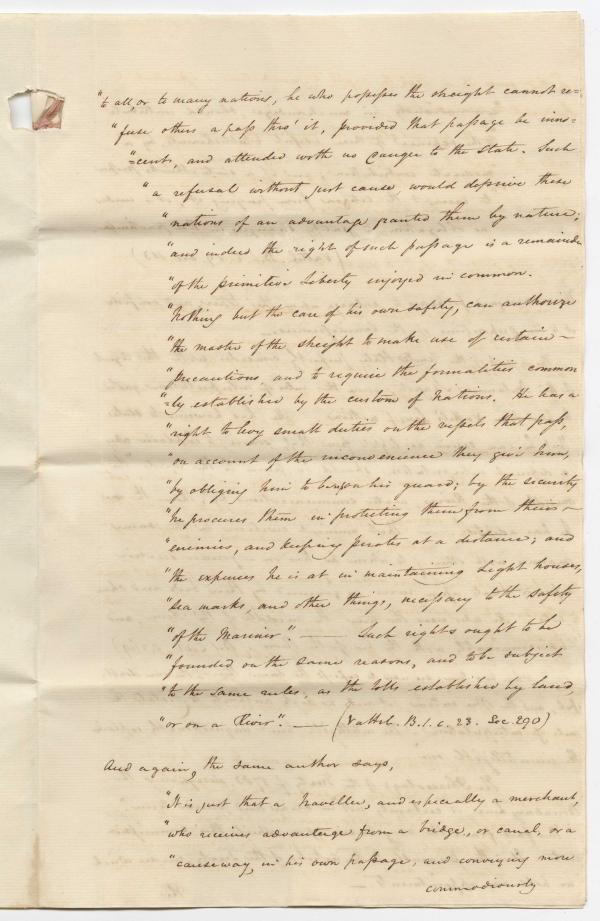 "to all, or to many nations, he who possesses the streight cannot re=
"fuse others a pass thro' it, provided that passage be inno=
"=cent, and attended with no danger to the State. Such
"a refusal without just cause, would deprive these
"nations of an advantage granted them by nature;
"and indeed the right of such passage is a remainder
"of the primitive Liberty enjoyed in common.
"Nothing but the care of his own safety, can authorize
"the master of the streight to make use of certain –
"precautions, and to require the formalities common
"=ly established by the custom of Nations. He has a
"right to levy small duties on the vessels that pass,
"on account of the inconvenience they give him,
"by obliging him to be upon his guard; by the security
"he procures them in protecting them from their –
"enemies, and keeping pirates at a distance; and
"the expenses he is at in maintaining Light houses,
"sea marks, and other things, necessary to the safety
"of the Mariner". — Such rights ought to be
"founded on the same reasons, and to be subject
"to the same rules, as the tolls established by land
"or on a River". — (Vattel. B. 1. c. 23. Sec. 290)
And again, the same author says,
"It is just that a traveller, and especially a merchant,
"who receives advantage from a bridge, or canal, or a
"causeway, in his own passage, and conveying more
commodiously